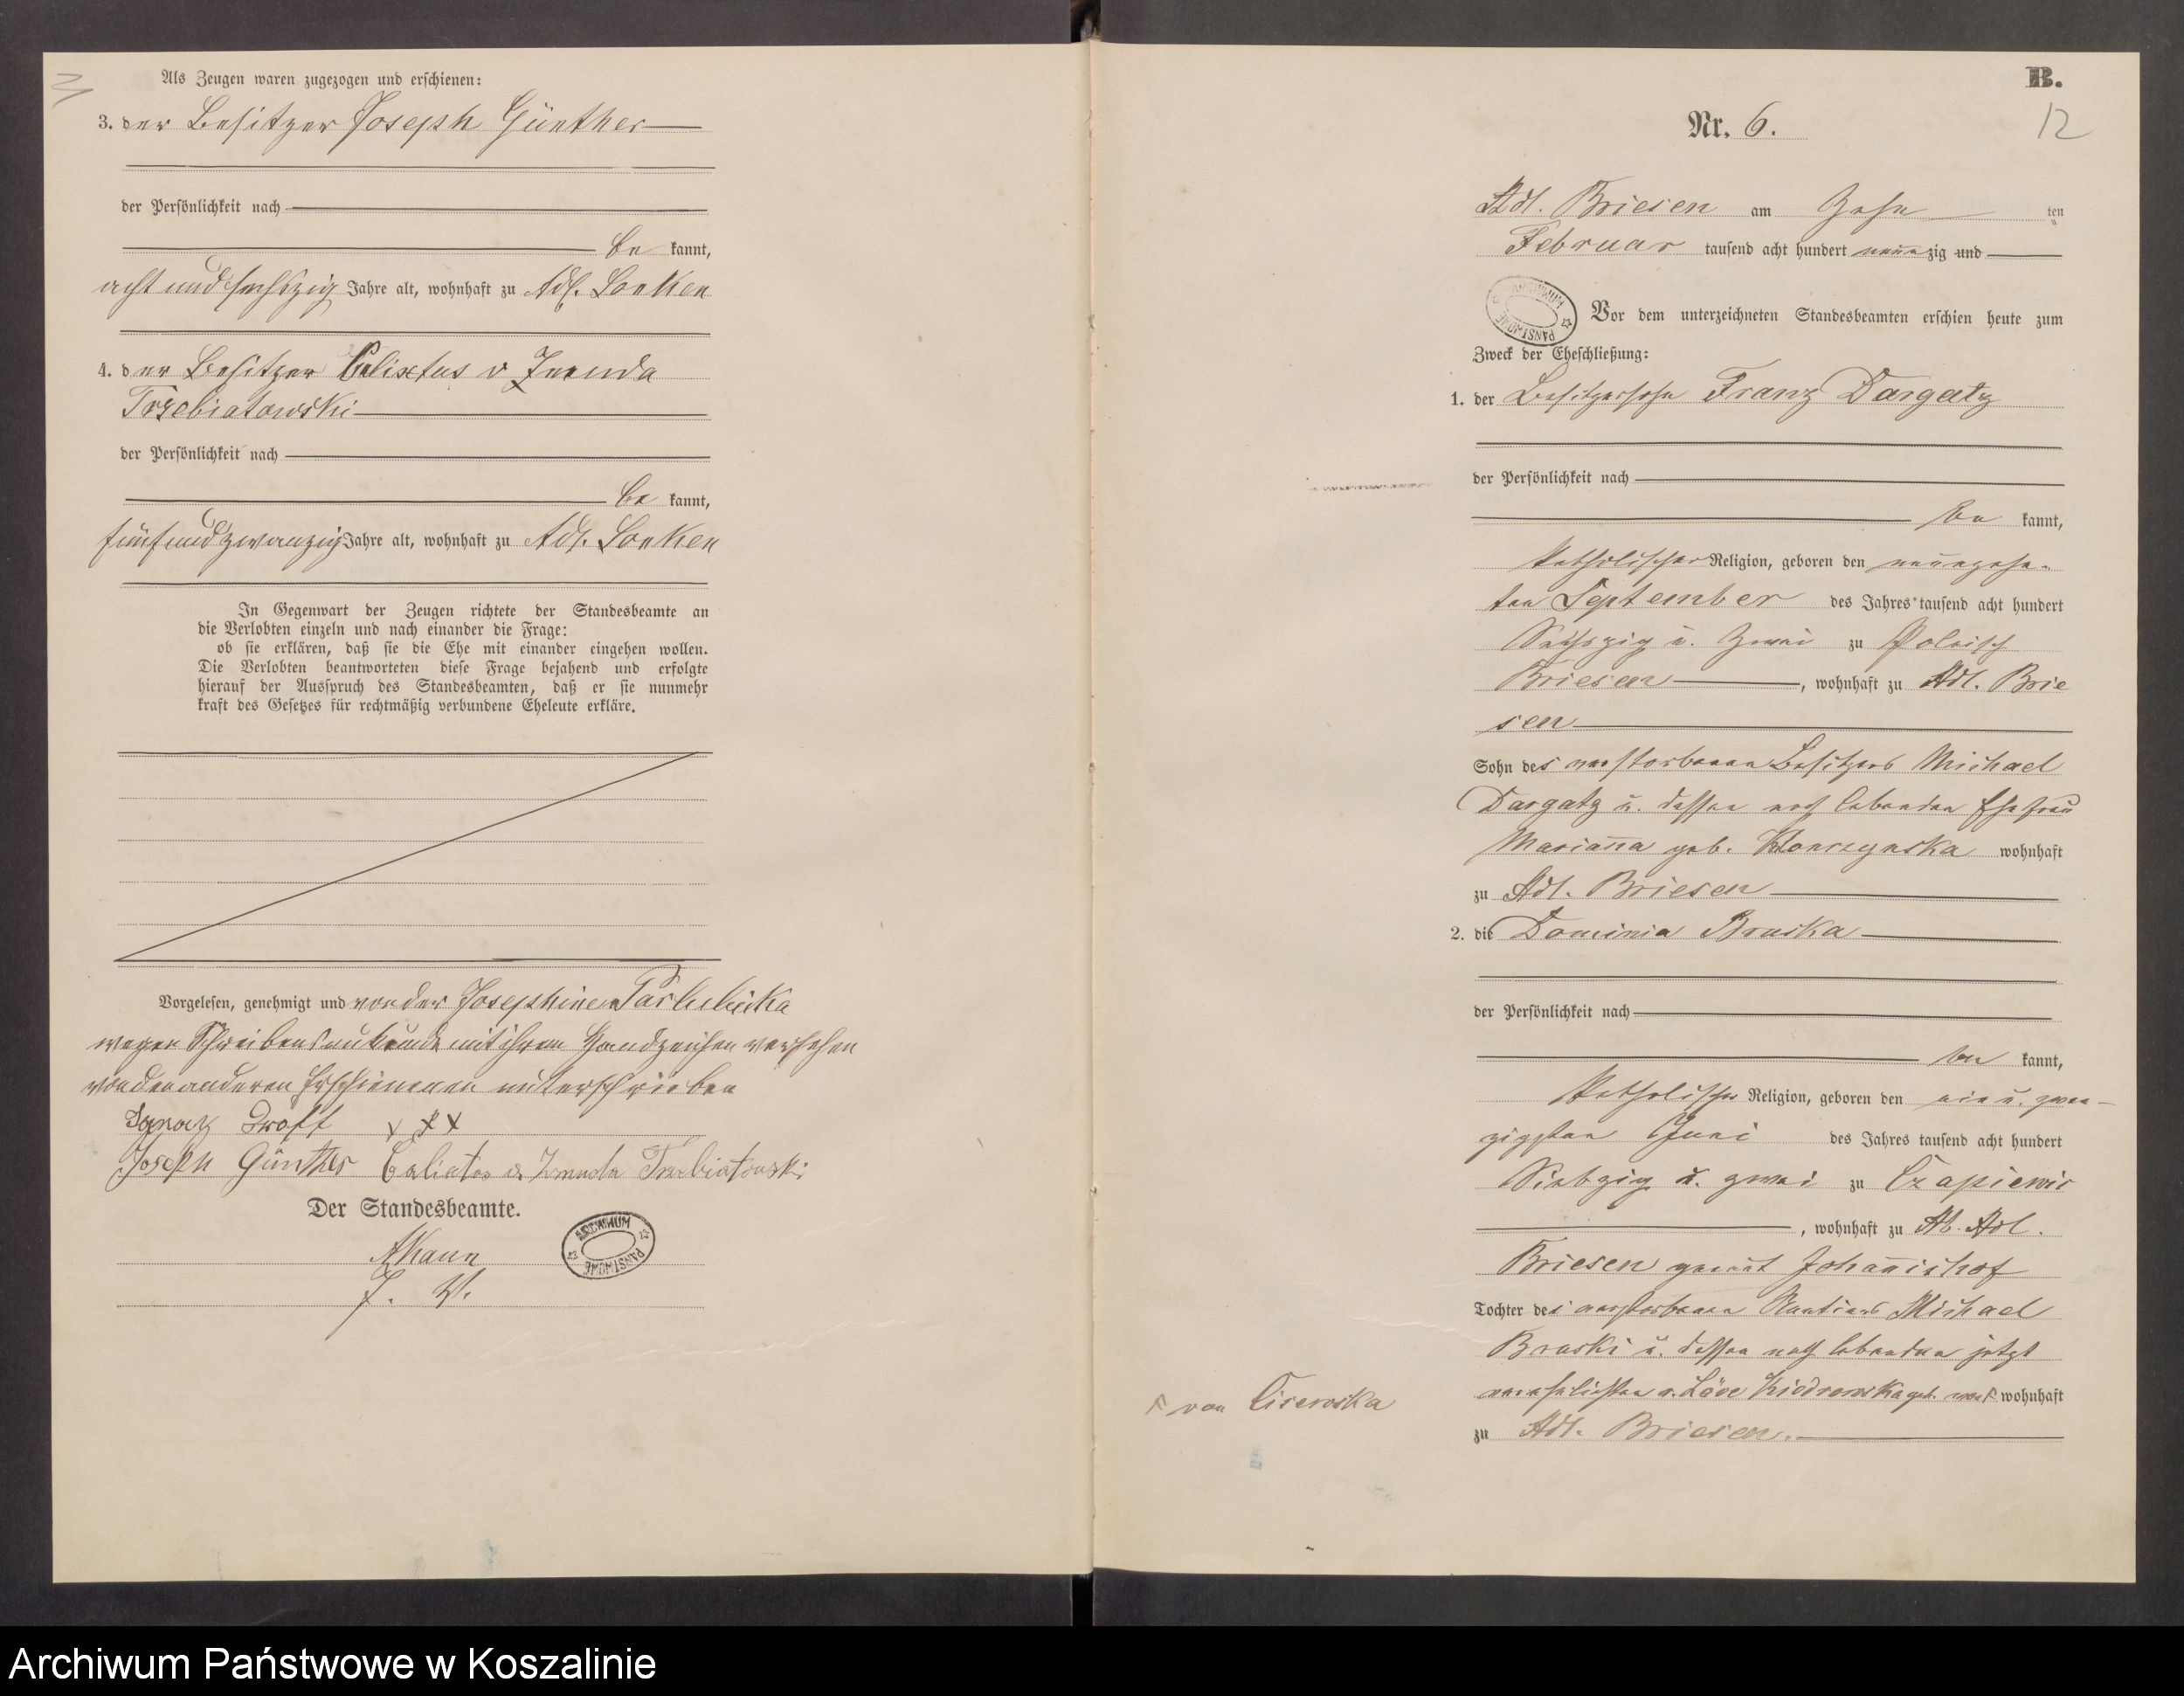 Als Zeugen waren zugezogen und erschienen:
3. der Besitzer Joseph Günther
der Persönlichkeit nach
be kannt,
acht und sechszig Jahre alt, wohnhaft zu Adl. Lonken
4. der Besitzer Calixtus v Zmuda
Trzebiatowski
der Persönlichkeit nach
be kannt,
fünf und zwanzig Jahre alt, wohnhaft zu Adl. Lonken
In Gegenwart der Zeugen richtete der Standesbeamte an
die Verlobten einzeln und nach einander die Frage:
ob sie erklären, daß sie die Ehe mit einander eingehen wollen.
Die Verlobten beantworteten diese Frage bejahend und erfolgte
hierauf der Ausspruch des Standesbeamten, daß er sie nunmehr
kraft des Gesetzes für rechtmäßig verbundene Eheleute erkläre.
Vorgelesen, genehmigt und von der Josephine
wegen Schreibensunkunde mit ihrem Handzeichen versehen
von den anderen Erschienenen unterschrieben
Ignatz xxx
Joseph Günther Calixtus v. Zmuda Trzebiatowski
Der Standesbeamte.
J. V.
ARCHIWUM PAŃSTWOWE
B.
12
Nr. 6.
Adl. Briesen am Zehn ten
Februar tausend acht hundert neunzig und
ARCHIWUM PAŃSTWOWE
Vor dem unterzeichneten Standesbeamten erschien heute zum
Zweck der Eheschließung:
1. der Besitzersohn Franz Dargatz
der Persönlichkeit nach
be kannt,
katholischer Religion, geboren den neunzehn-
ten September des Jahres tausend acht hundert
Sechszig u. Zwei zu Polnisch
Briesen, wohnhaft zu Adl. Brie
sen
Sohn des verstorbenen Besitzers Michael
Dargatz u. dessen noch lebenden Ehefrau
Marianna geb. wohnhaft
zu Adl. Briesen
2. die Dominia Bruska
der Persönlichkeit nach
be kannt,
katholischer Religion, geboren den ein u. zwan-
zigsten Juni des Jahres tausend acht hundert
Siebzig u. zwei zu Czapiewic
, wohnhaft zu Ab. Adl.
Briesen genannt Johannishof
Tochter des verstorbenen Rentiers Michael
Bruski u. dessen noch lebenden jetzt
verehelichten v. Kiedrowska geb. wohnhaft
zu Adl. Briesen.
von Cisewska
Archiwum Państwowe w Koszalinie